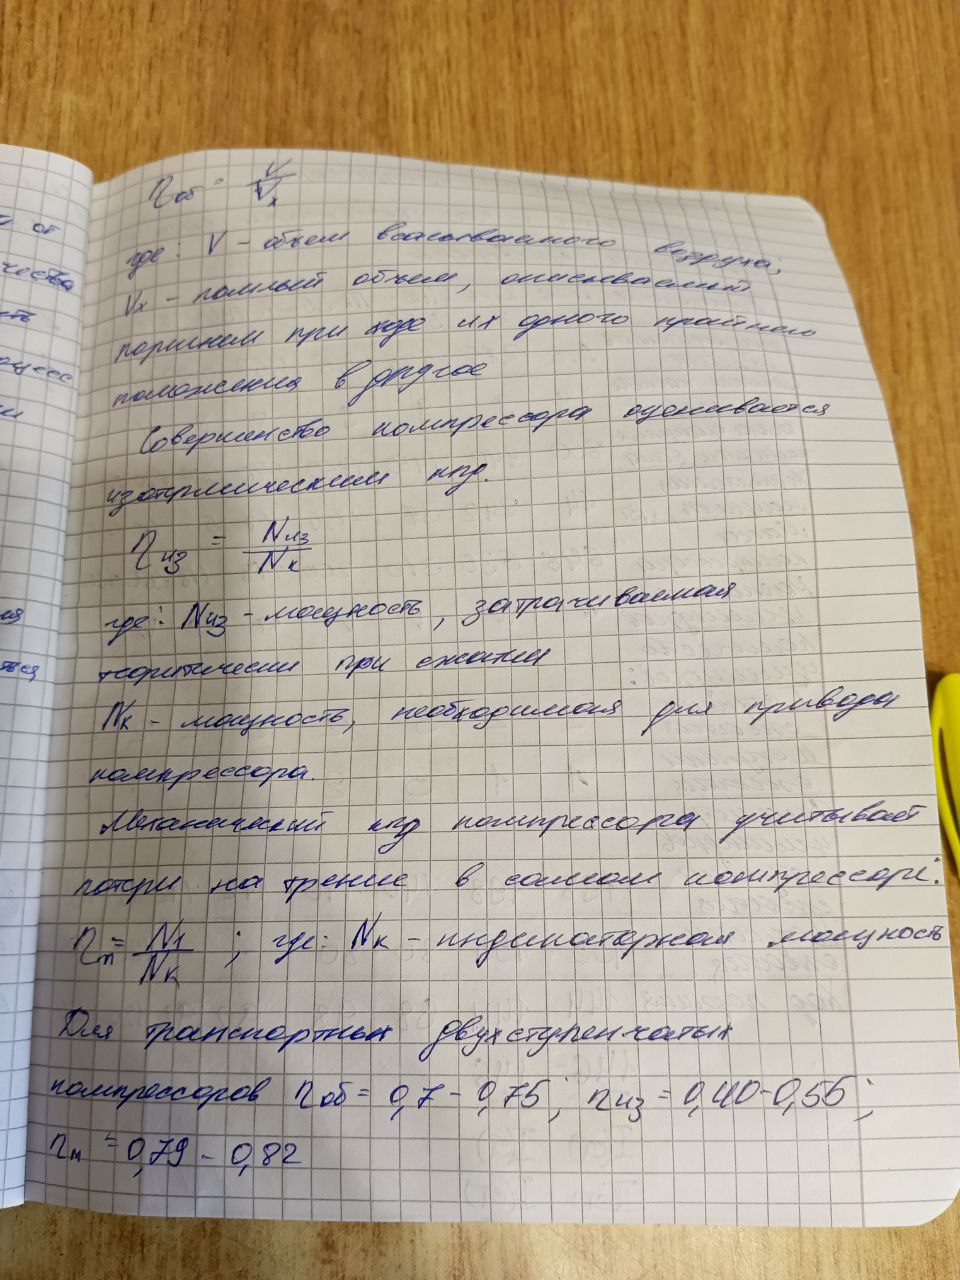 ηоб = V/Vх
где: V - объем всасываемого воздуха,
Vх - полный объем, описываемый
поршнем при ходе их одного крайнего
положения в другое
Совершенство компрессора оценивается
изотермическим кпд.
ηиз = Nиз/Nк
где: Nиз - мощность, затрачиваемая
теоритически при сжатии
Nк - мощность, необходимая для привода
компрессора.
Механический кпд компрессора учитывает
потери на трение в самом компрессоре:
ηм = N1/Nк ; где: Nк - индикаторная мощность
Для транспортных двухступенчатых
компрессоров ηоб = 0,7 - 0,75; ηиз = 0,40-0,56;
ηм = 0,79 - 0,82